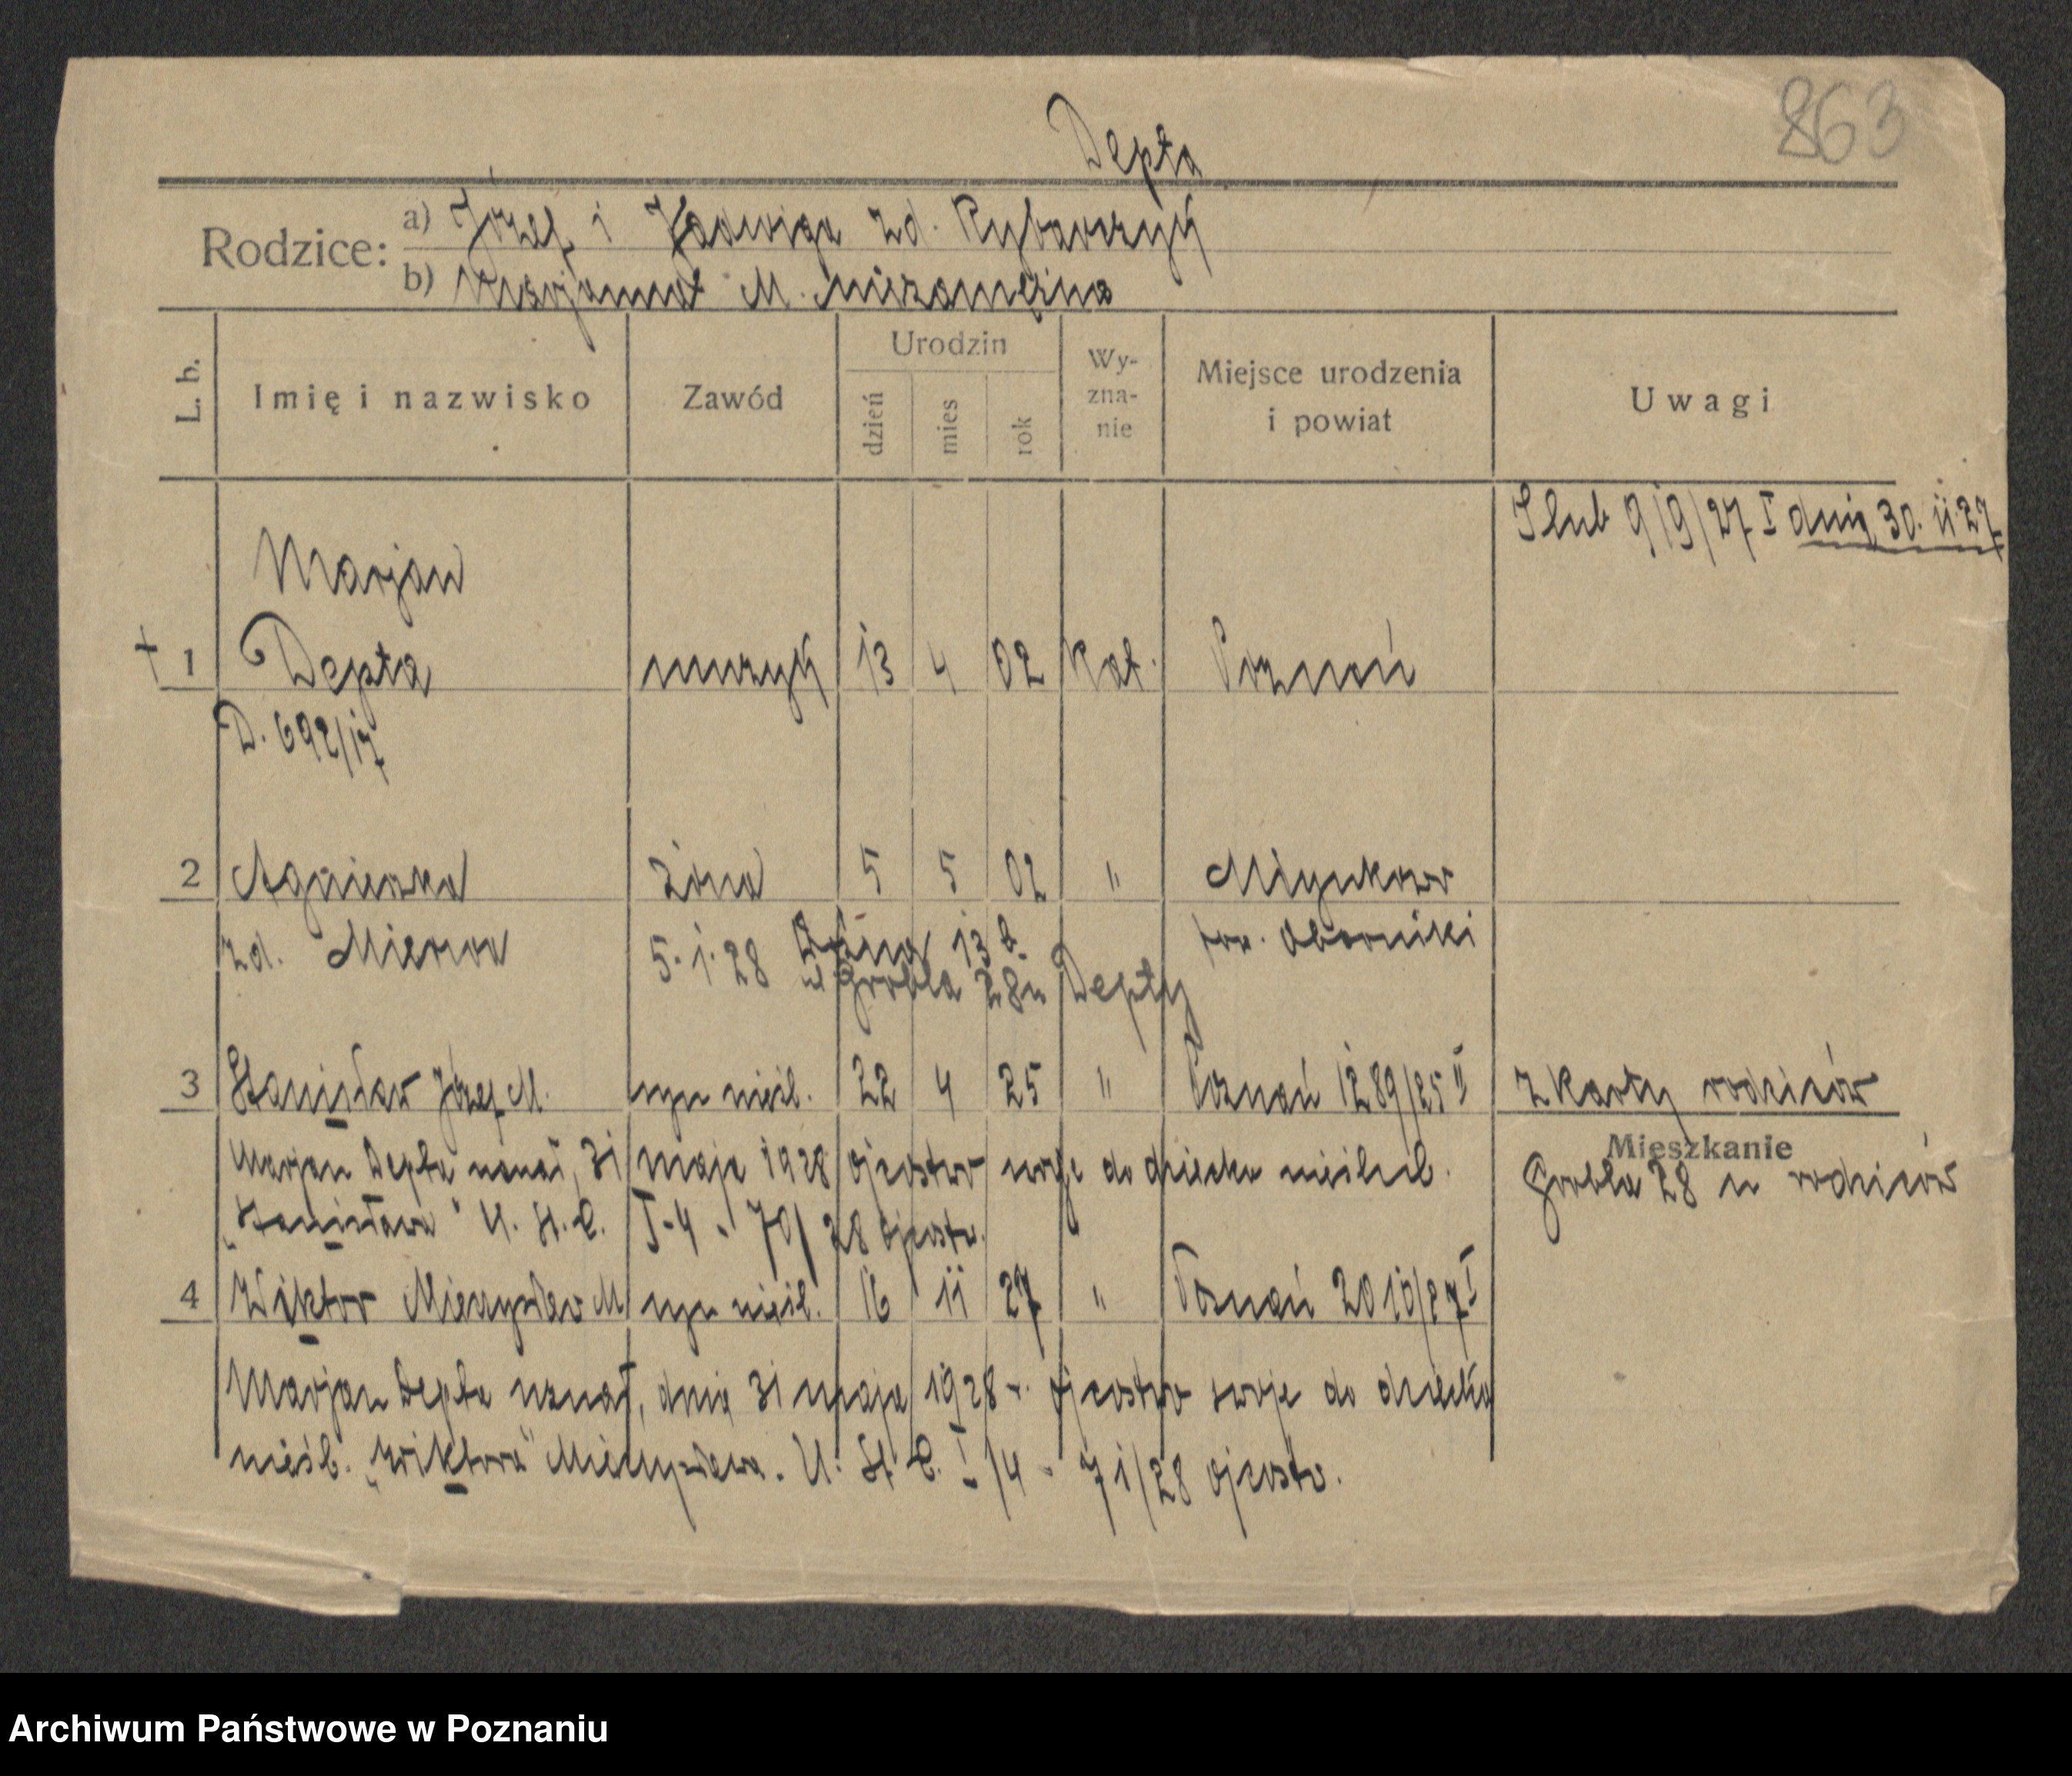 863
Depta
Rodzice: a) Józef i Jadwiga zd. Rybarczyk
b) Marjanna M. niezamężna
L. b. Imię i nazwisko Zawód Urodzin dzień mies rok Wy-zna-nie Miejsce urodzenia i powiat Uwagi
Slub 919/27 I dnia 30. 11. 27
Marjan
† 1 Depta muzyk 13 4 02 Kat. Poznań
D. 692/17
2 Agnieszka żona 5 5 02 " 
zd. pow. Oborniki
5. 1. 28 13
ul Grobla 28 u Depty
3 Stanisław Józef M. syn nieśl. 22 4 25 " Poznań 1289/25 II z karty rodziców
Mieszkanie
Marjan Depta uznał, 31 maja 1928 ojcostwo swoje do dziecka nieślub. Grobla 28 u rodziców
„Stanisława" U. St. C. I-4 - 70/28 ojcostw.
4 Wiktor Mieczysław M syn nieśl. 16 11 27 " Poznań 2010/27 I
Marjan Depta uznał, dnia 31 maja 1928 r. ojcostwo swoje do dziecka
nieśb. „Wiktora" Mieczysława. U. St. C. I/4 - 71/28 ojcostw.
Archiwum Państwowe w Poznaniu